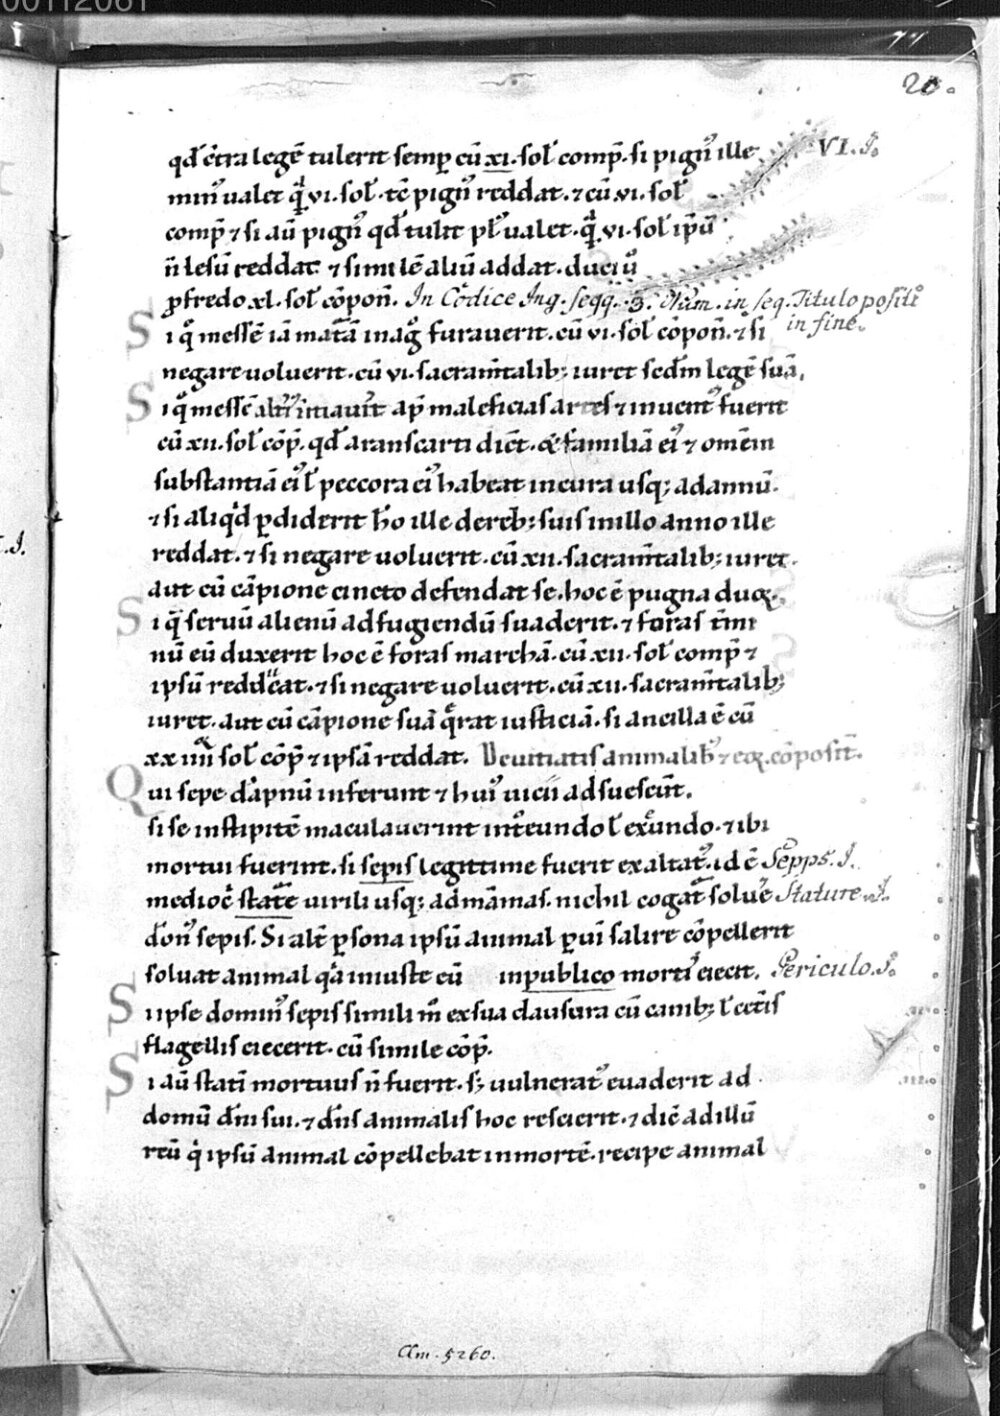 00112081
77
20.
qd̄ c̄tra legē tulerit semp cū xi. sol comp̄. si pignꝰ ille VI. J.
minꝰ ualet q̄ vi. sol. tc̄ pignꝰ reddat. ⁊ cū vi. sol
comp̄ ⁊ si aū pignꝰ qd̄ tulit plꝰ ualet. q̄ vi. sol ipū
n̄ lesū reddat ⁊ similē aliū addat. duci ū
ꝓ fredo xl. sol cōpon̄. In Codice Ing. seqq. 3. Num. in seq. Titulo positi
in fine.
Si qͥ messē iā matā mag̊ furauerit. cū vi. sol cōpon̄. ⁊ si
negare uoluerit. cū vi. sacram̄talib; iuret sedm̄ legē suā,
Si qͥ messē alt̄iꝰ initiauit̄ ap̄ maleficias artes ⁊ inuentꝰ fuerit
cū xii. sol cōp̄. qd̄ aranscarti dic̄t. & familiā eiꝰ ⁊ omēm
substantiā eiꝰ l peccora eiꝰ habeat in cura usq; ad annū.
⁊ si aliqd̄ ꝑdiderit h̄o ille de reb; suis in illo anno ille
reddat. ⁊ si negare uoluerit. cū xii. sacram̄talib; iuret.
aut cū cāpione cincto defendat se. hoc ē pugna duoꝝ.
Si qͥ seruū alienū ad fugiendū suaderit. ⁊ foras t̄mi
nū eū duxerit hoc ē foras marchā. cū xii. sol comp̄ ⁊
ipsū reddeat. ⁊ si negare uoluerit. cū xii. sacram̄talib;
iuret. aut cū cāpione suā q̄rat iusticiā. si ancilla ē cū
xx iiii sol cōp̄ ⁊ ipsā reddat. De uitiatis animalib ⁊ eoꝝ. cōposit̄.
Qui sepe dāpnū inferunt ⁊ huiꝰ uicii adsuescūt.
si se in stipitē maculauerint int̄eundo l exeundo. ⁊ ibi
mortui fuerint. si sepis legittime fuerit exaltatꝰ. id ē Sepps. J.
mediocͥ statē uirili usq; ad māmas. nichil cogat̄ soluē Stature. J.
don̄ꝰ sepis. Si alt̄ ꝑsona ipsū animal ꝑ uim salire cōpellerit
soluat animal qͣa iniuste eū in publico mortiꝰ eiecit. Periculo. J.
Si ipse dominꝰ sepis simili m̄ ex sua clausura cū canib; l cet̄is
flagellis eiecerit. cū simile cōp̄.
Si aū statī mortuus n̄ fuerit. s; uulneratꝰ euaderit ad
domū dn̄i sui. ⁊ dn̄s animalis hoc rescierit. ⁊ dic̄ ad illū
reū qͥ ipsū animal cōpellebat in mortē. recipe animal
Clm. 5260.